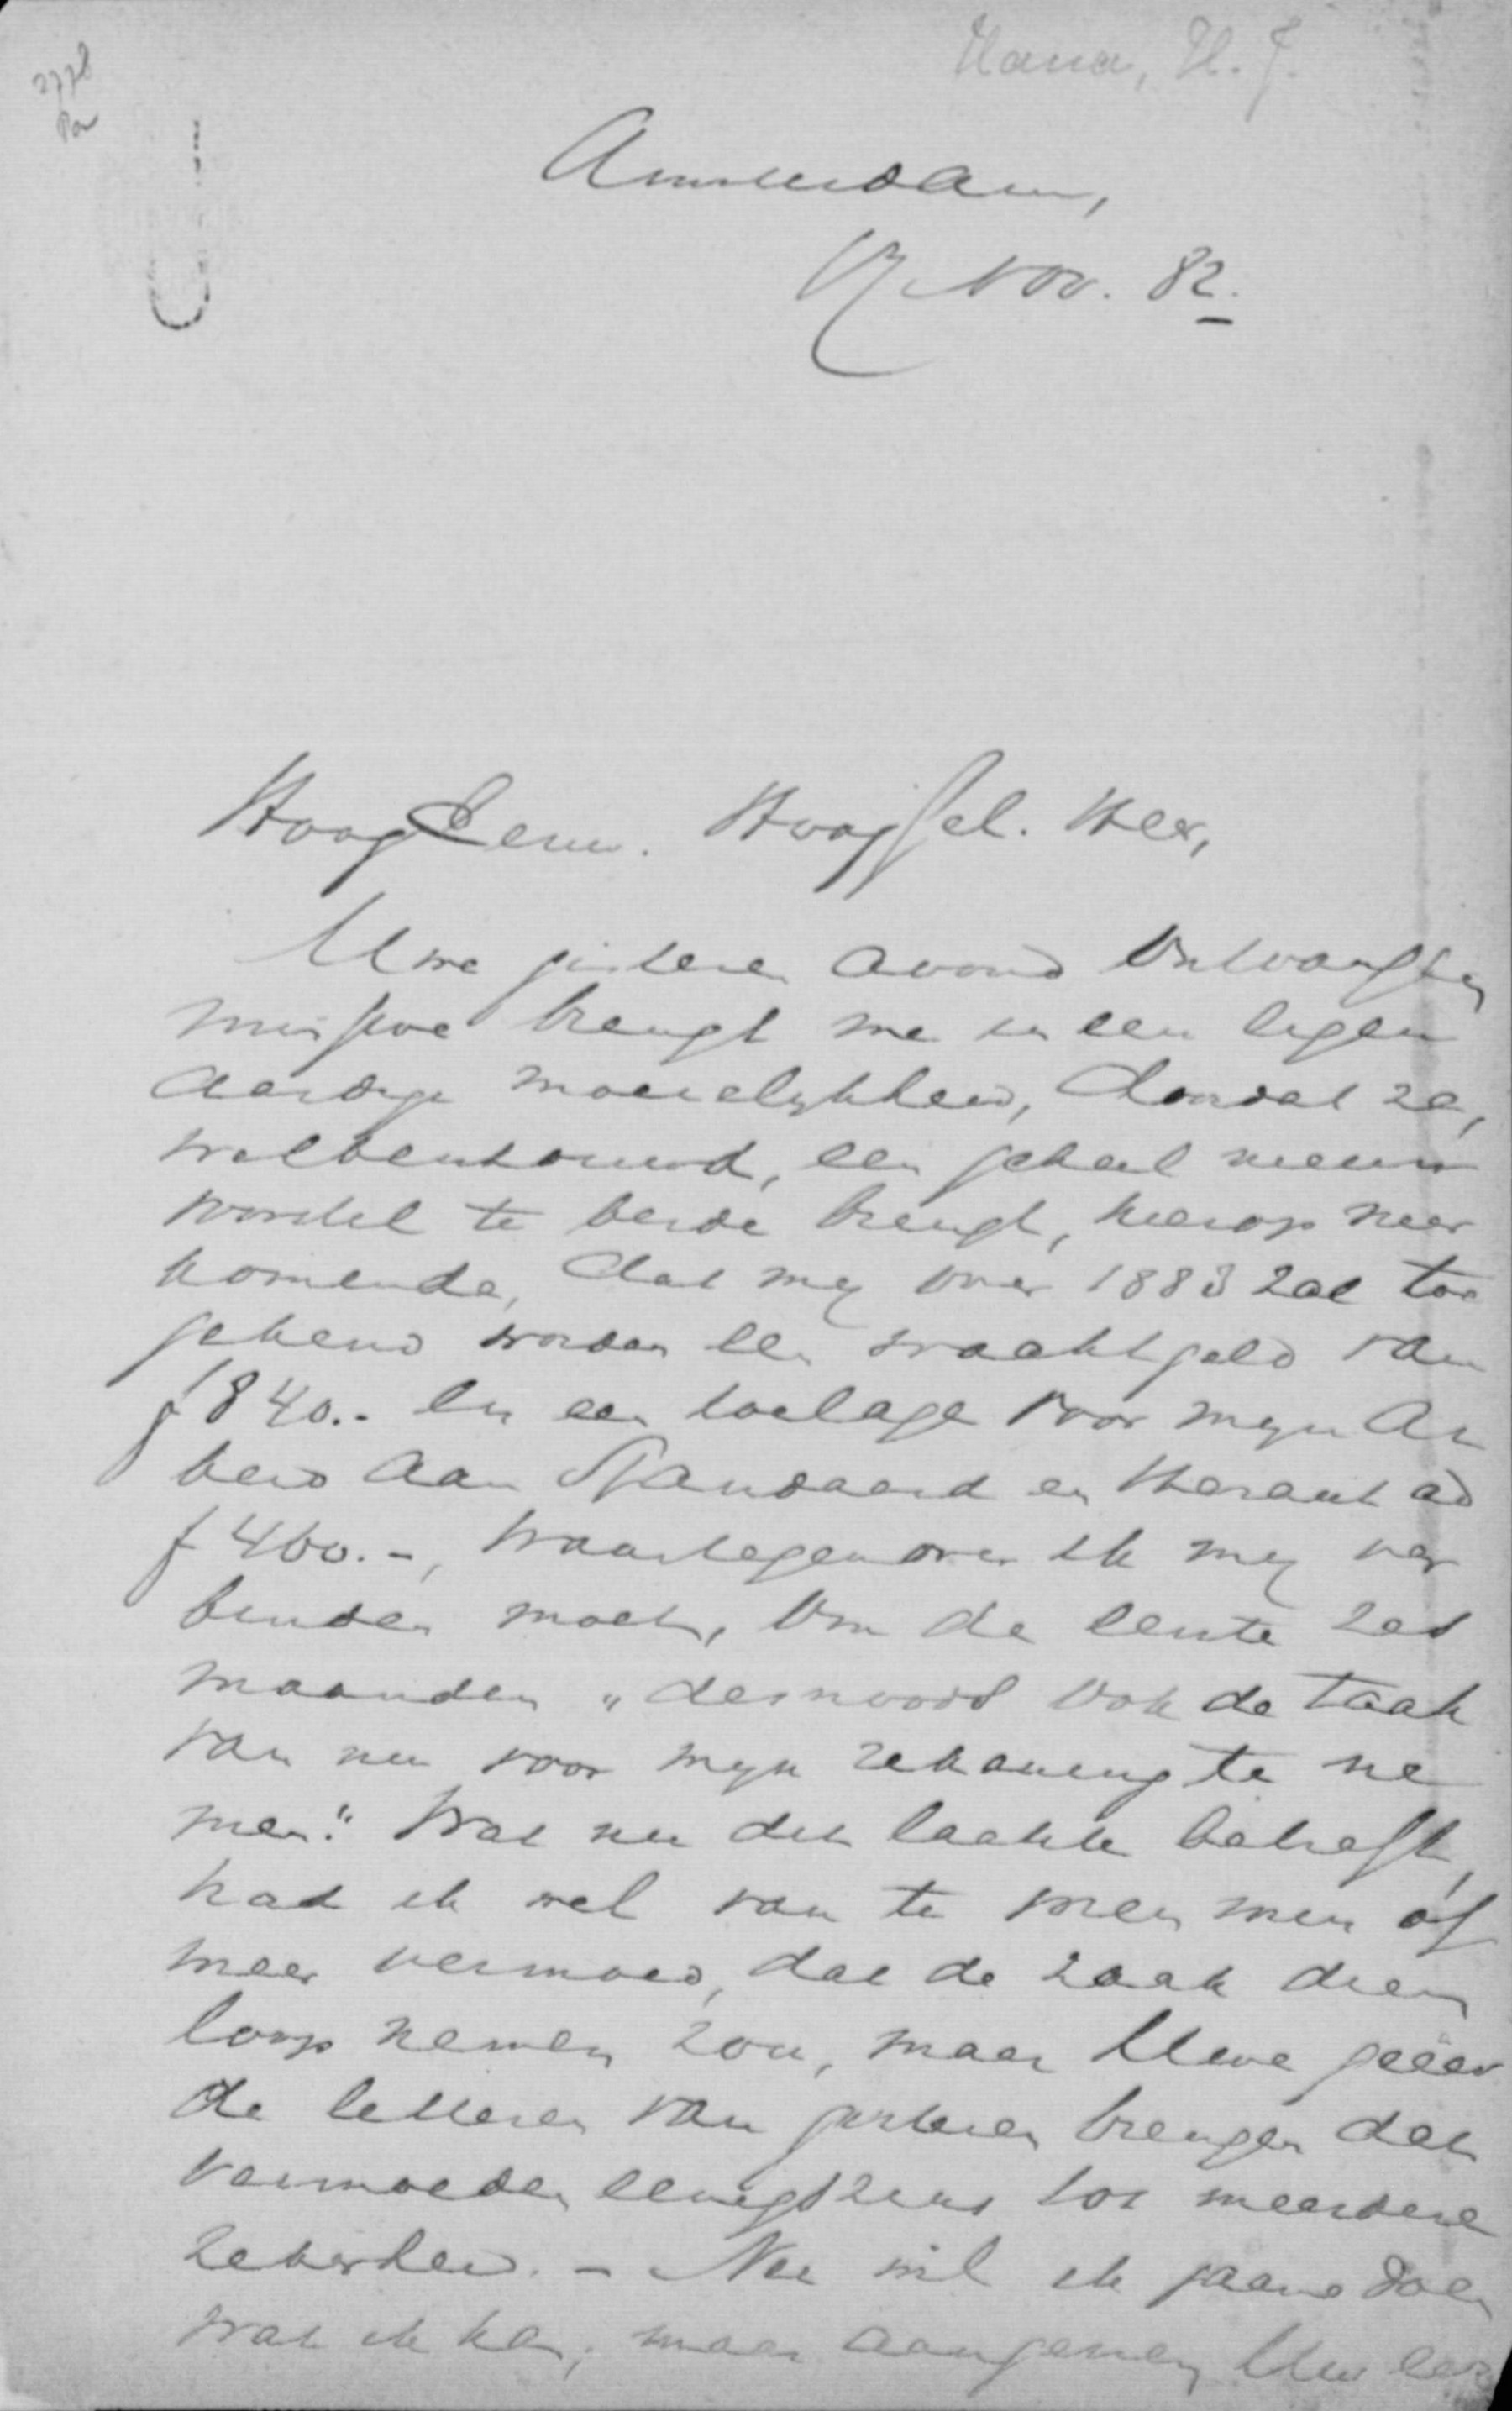 Hana, H. J.
2778
Amsterdam,
17 Nov. 82.
HoogEerw. Hooggel. Heer,
Uwe gisteren avond ontvangen
missive brengt me in een eigen
aardige moeielykheid, doordat ze,
welbeschouwd, een geheel nieuw
voorstel te berde brengt, hierop neer
komende, dat my over 1883 zal toe
gekend worden een wachtgeld van
f 840.- en een toelage voor myn ar
beid aan Standaard en Heraut ad
f 460.-, waartegenover ik my ver
binden moet, om de eerste zes
maanden „desnoods ook de taak
van nu voor myn rekening te ne
men." Wat nu dit laatste betreft,
had ik wel van te voren min of
meer vermoed, dat de zaak dien
loop nemen zou, maar Uwe geëer
de letteren van gisteren brengen dat
vermoeden eenigszins tot meerdere
zekerheid. - Nu wil ik gaarne doen
wat ik kan; maar aangezien Uw